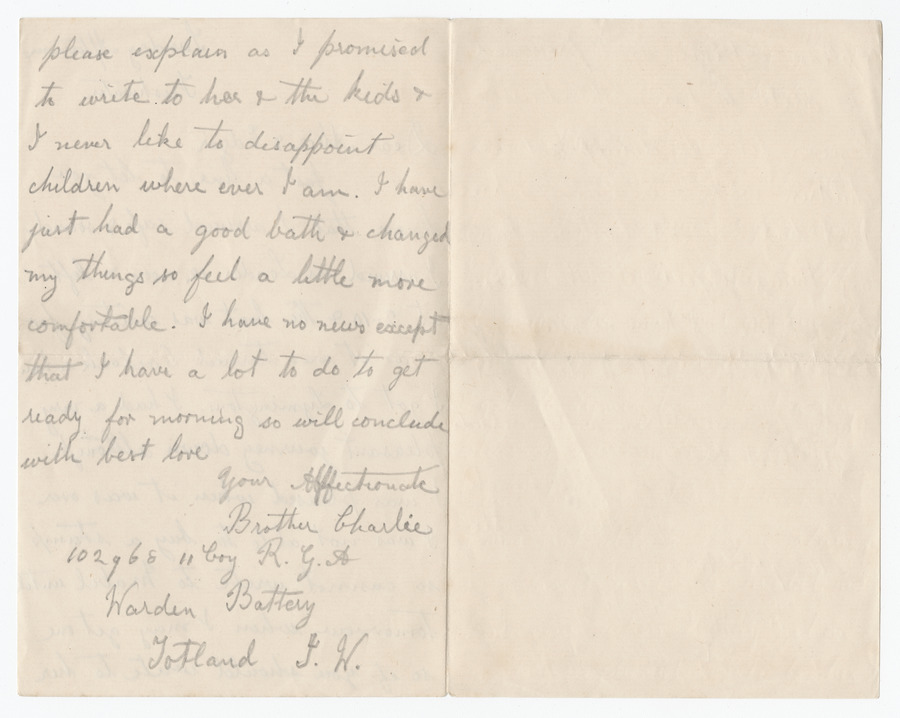 please explain as I promised
to write to her & the kids &
I never like to disappoint
children where ever I am. I have
just had a good bath & changed
my things so feel a little more
comfortable. I have no news except
that I have a lot to do to get
ready for morning so will conclude
with best love
Your Affectionate
Brother Charlie
102968 11 Coy R. G. A
Warden Battery
Totland I. W.